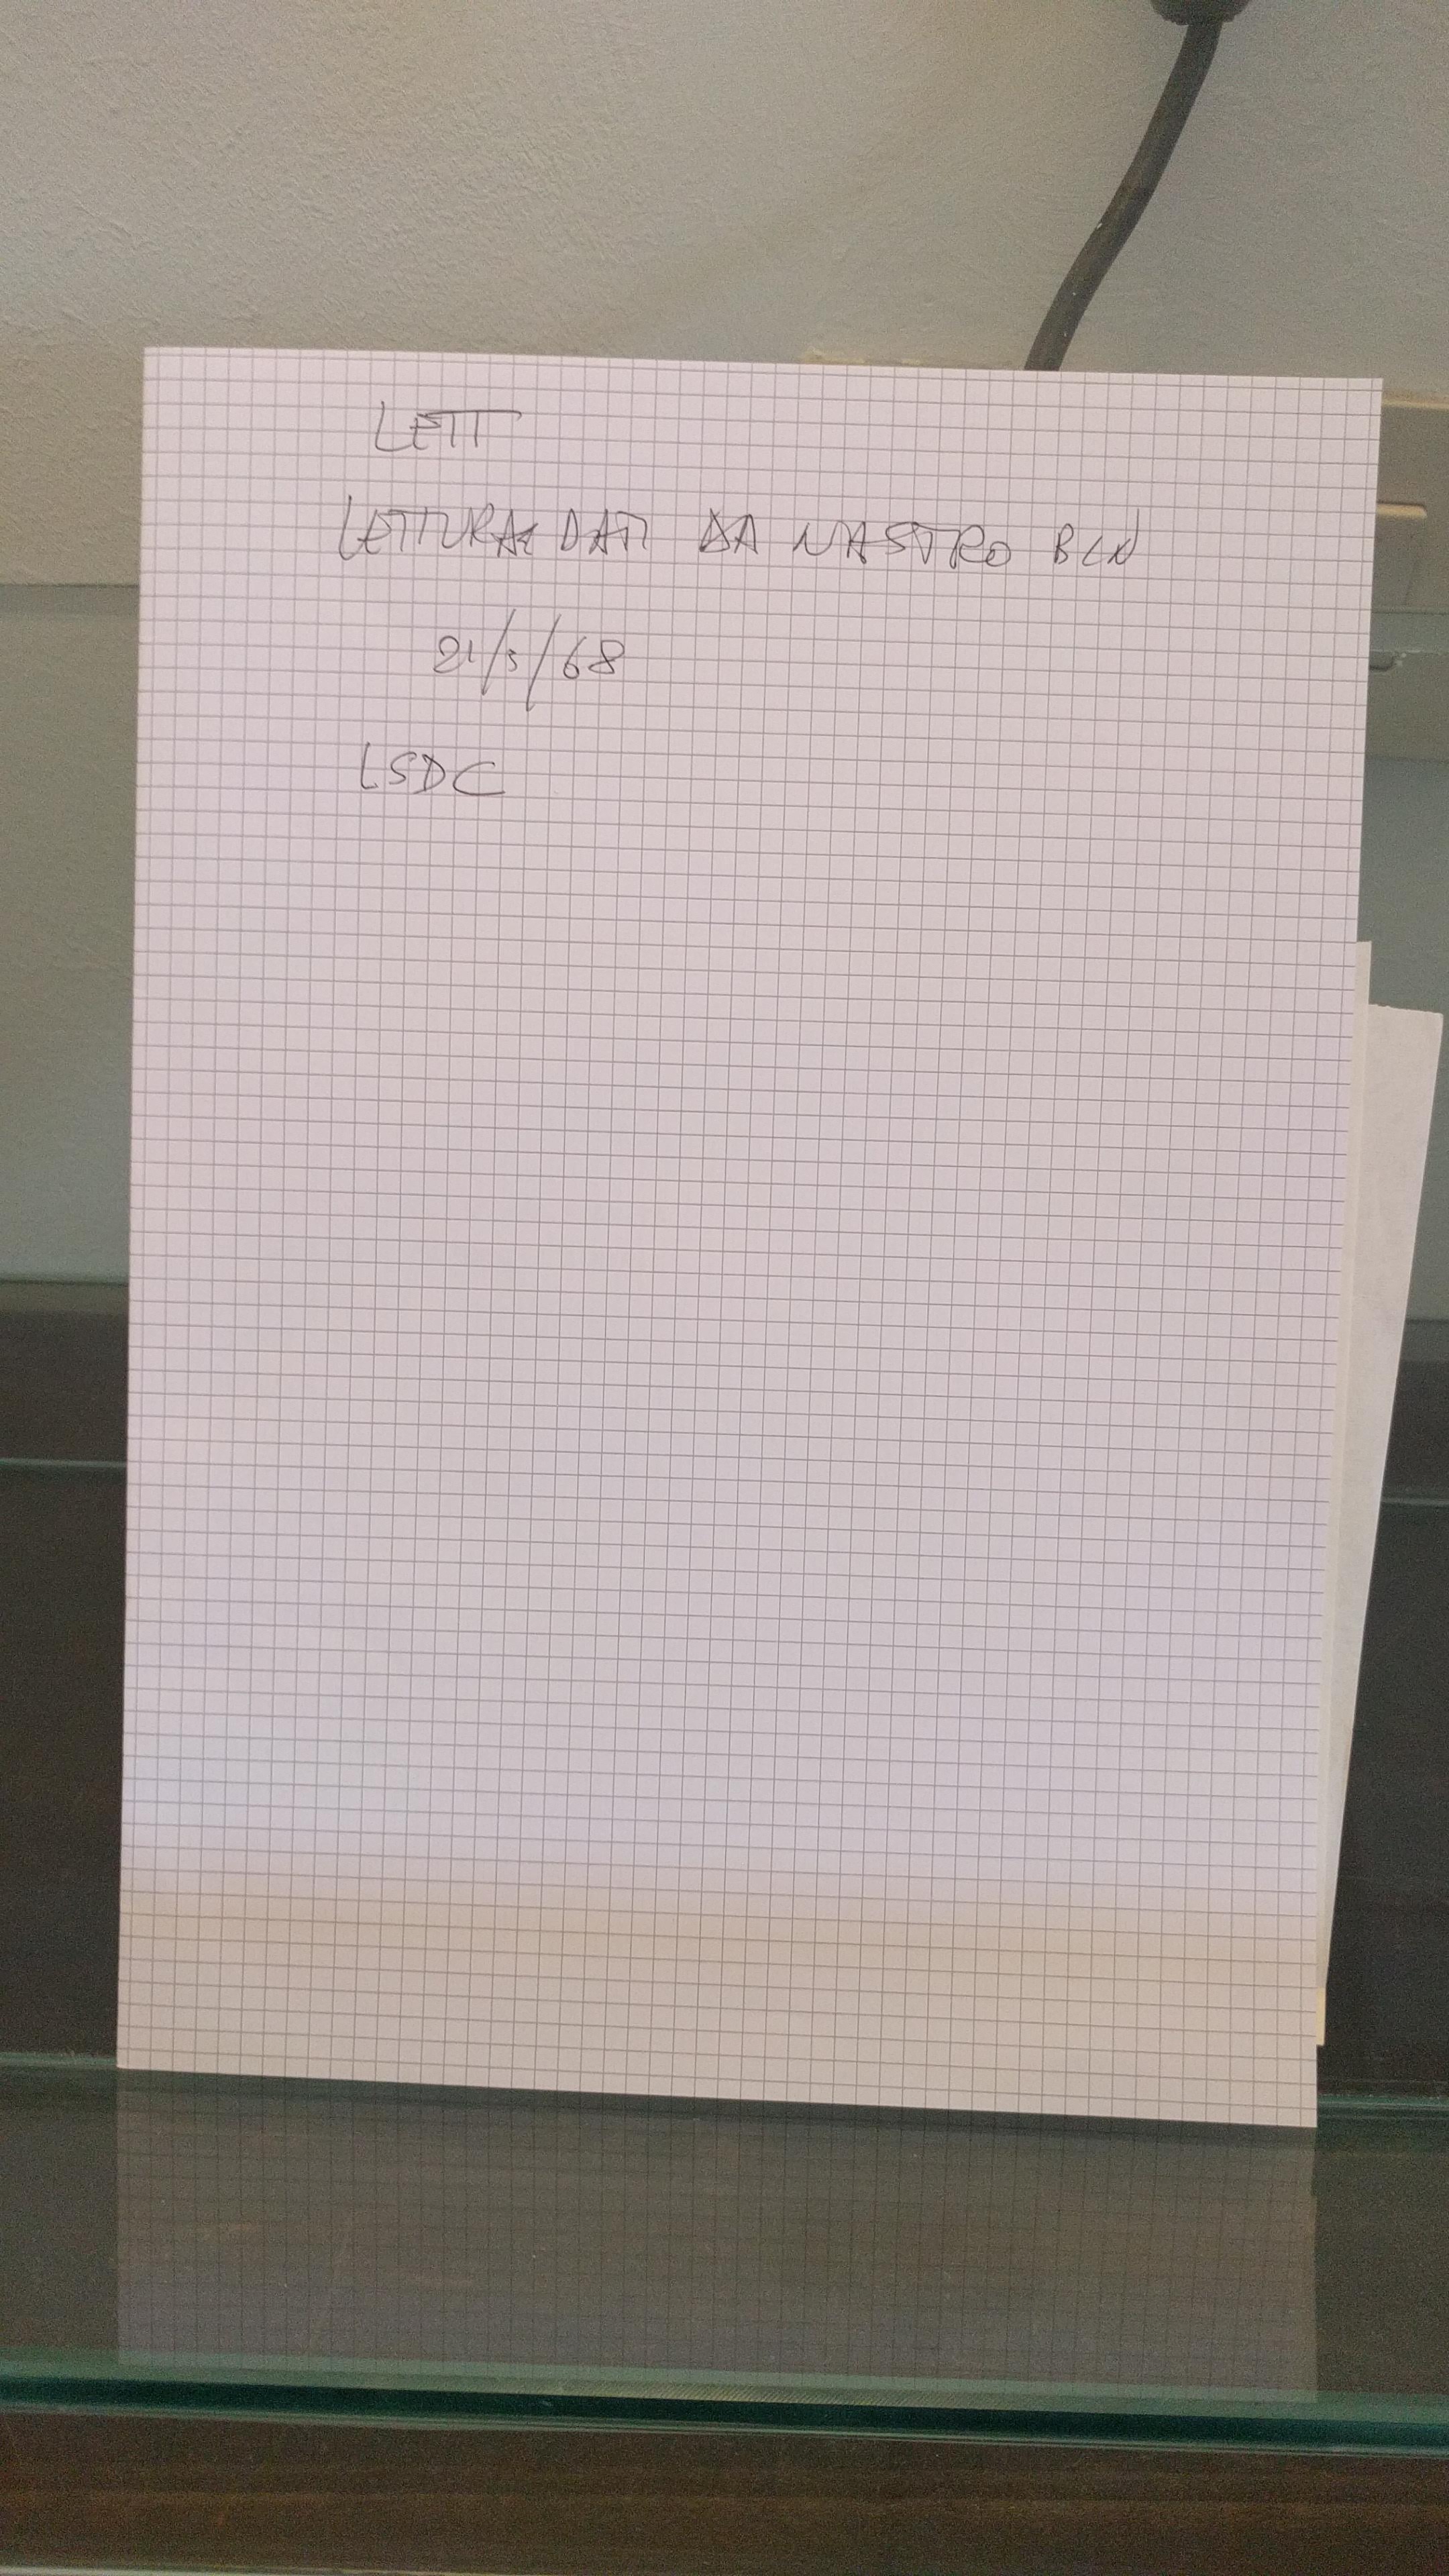 LETT
LETTURA DATI DA NASTRO
21/3/68
LSDC